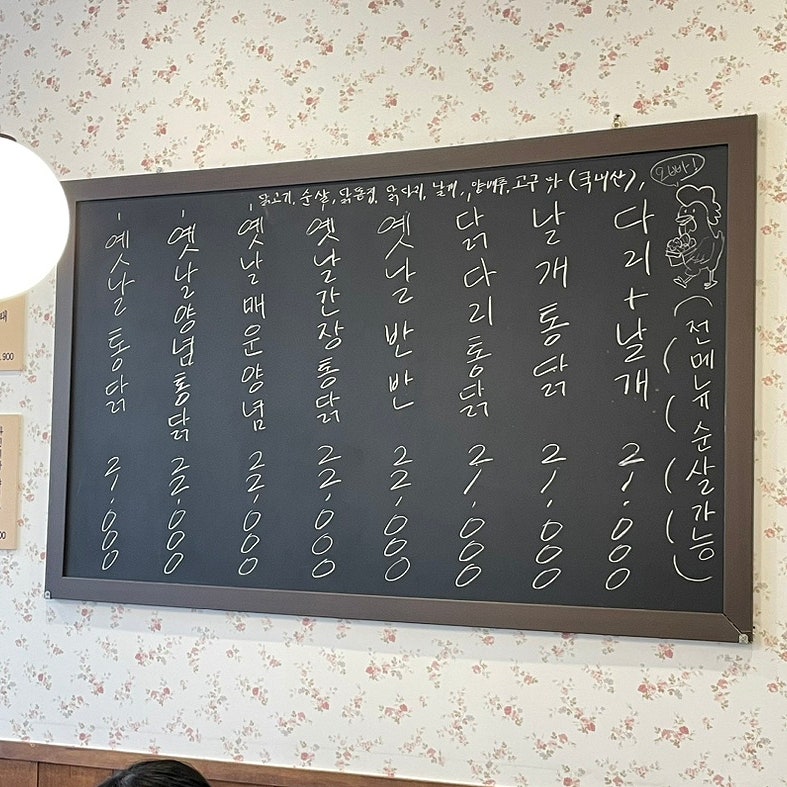 오빠!
닭고기, 순살, 닭똥집, 닭다리, 날개, 양배추, 고구마 (국내산),
옛날통닭 21,000
옛날양념통닭 22,000
옛날매운양념 22,000
옛날간장통닭 22,000
옛날반반 22,000
닭다리통닭 21,000
날개통닭 21,000
다리+날개 21,000
(전메뉴 순살가능)
,900